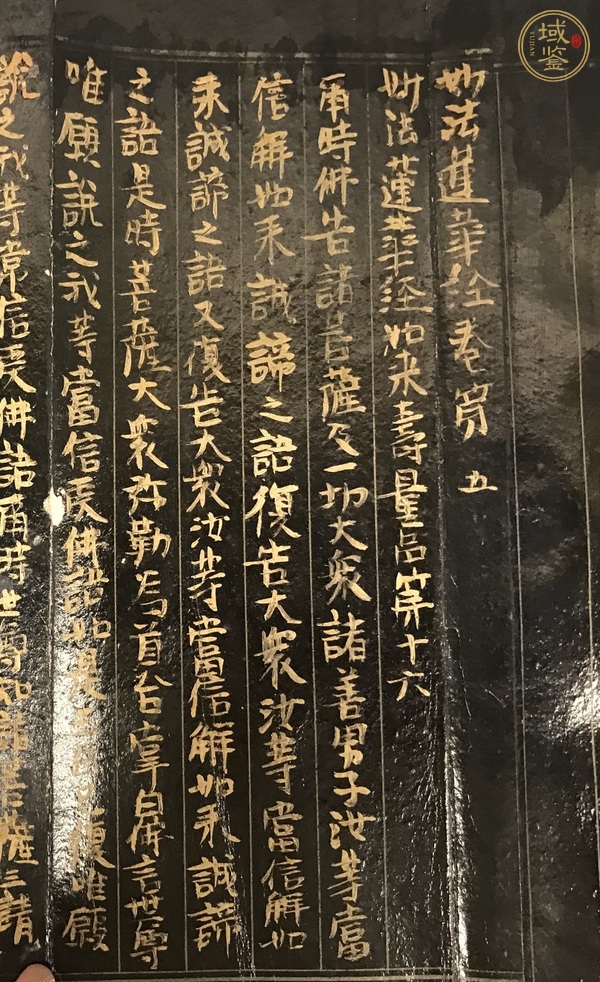 妙法蓮華経卷第五
妙法蓮華経如来壽量品第十六
爾時佛告諸菩薩及一切大衆諸善男子汝等當
信解如来誠諦之語復告大衆汝等當信解如
来誠諦之語又復告大衆汝等當信解如来誠諦
之語是時菩薩大衆弥勒為首合掌白佛言世尊
唯願說之我等當信受佛語如是三白已復唯願
說之我等當信受佛語爾時世尊知諸菩薩三請
域鉴
YUJIAN